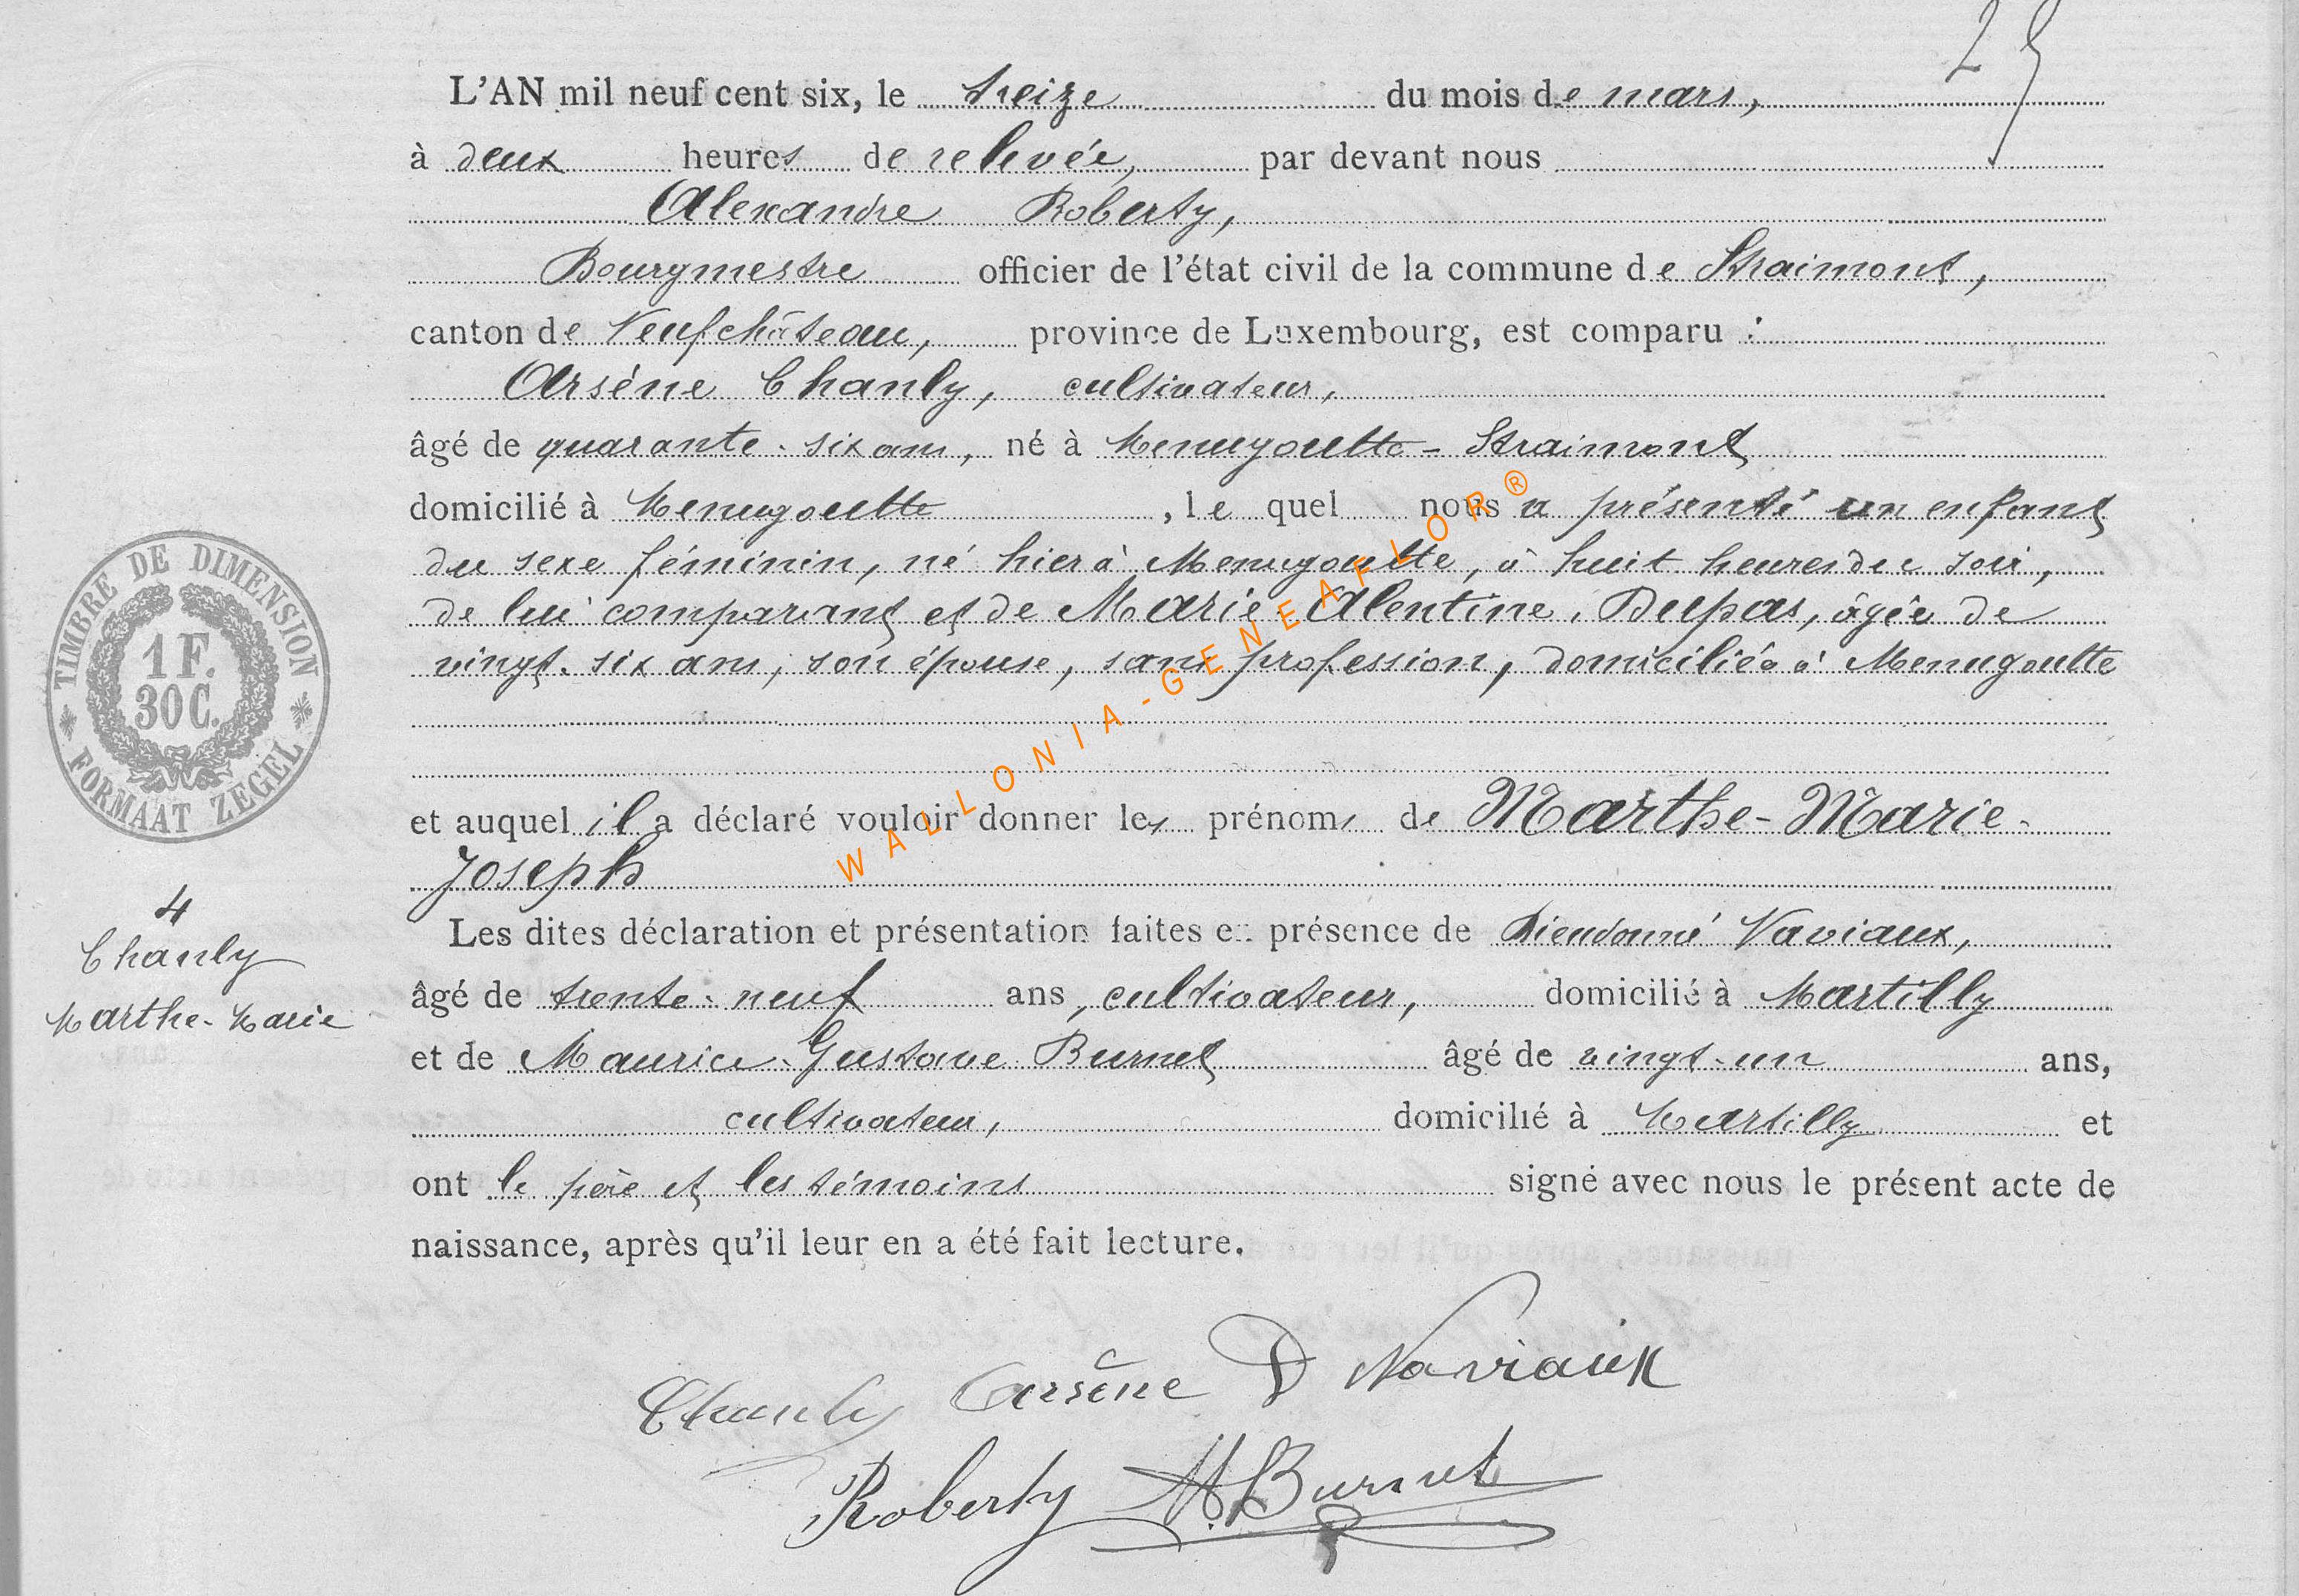 25
L'AN mil neuf cent six, le treize du mois de mars,
à deux heures de relevée, par devant nous
Alexandre Roberty,
Bourgmestre officier de l'état civil de la commune de Straimont,
canton de Neufchâteau, province de Luxembourg, est comparu :
Arsène Chanly, cultivateur,
âgé de quarante-six ans, né à Menugoutte - Straimont
domicilié à Menugoutte, le quel nous a présenté un enfant
du sexe féminin, né hier à Menugoutte, à huit heures du soir,
de lui comparant et de Marie-Alentine Dupas, âgée de
vingt-six ans, son épouse, sans profession, domiciliée à Menugoutte
et auquel il a déclaré vouloir donner les prénoms de Marthe-Marie-
Joseph
Les dites déclaration et présentation faites en présence de Dieudonné Naviaux,
âgé de trente-neuf ans, cultivateur, domicilié à Martilly
et de Maurice-Gustave Burnet âgé de vingt-un ans,
cultivateur, domicilié à Martilly et
ont le père et les témoins signé avec nous le présent acte de
naissance, après qu'il leur en a été fait lecture.
Chanly Arsène D Naviaux
Roberty M. Burnet
TIMBRE DE DIMENSION
1 F.
30 C.
FORMAAT ZEGEL
4
Chanly
Marthe-Marie
WALLONIA-GENEAFLOR®